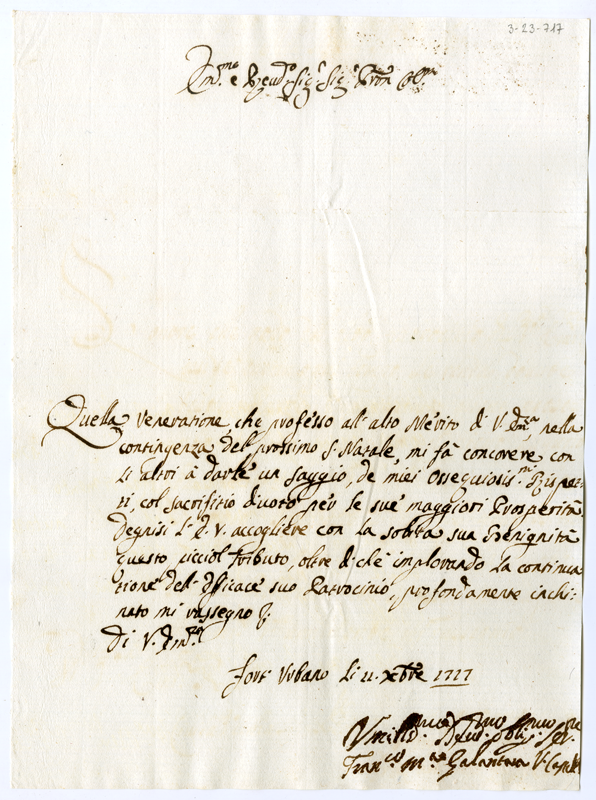 3-23-717
Em.mo e Reud.o Sig.r Sig.r Pron Col.mo
Quella Veneratione, che professo all' alto Merito di V. Em.za, nella
contingenza del prossimo S. Natale, mi fà concorere con
li altri à darle un saggio, de miei Ossequiosis.mi Rispet-
ti, col sacrifitio diuoto per le sue maggiori Prosperità
Degnisi l' E. V. accogliere con la solita sua Benignità
questo picciol tributo, oltre di che implorando la continua
tione dell' Efficace suo Patrocinio, profondamente inchi-
nato mi rassegno
Di V. Em.za
Fort' Urbano li 11. Xbre 1727
Vmiliss.mo Deu.mo Oblig.mo Ser.re
Fran.co M.a Galantara V. Cast.